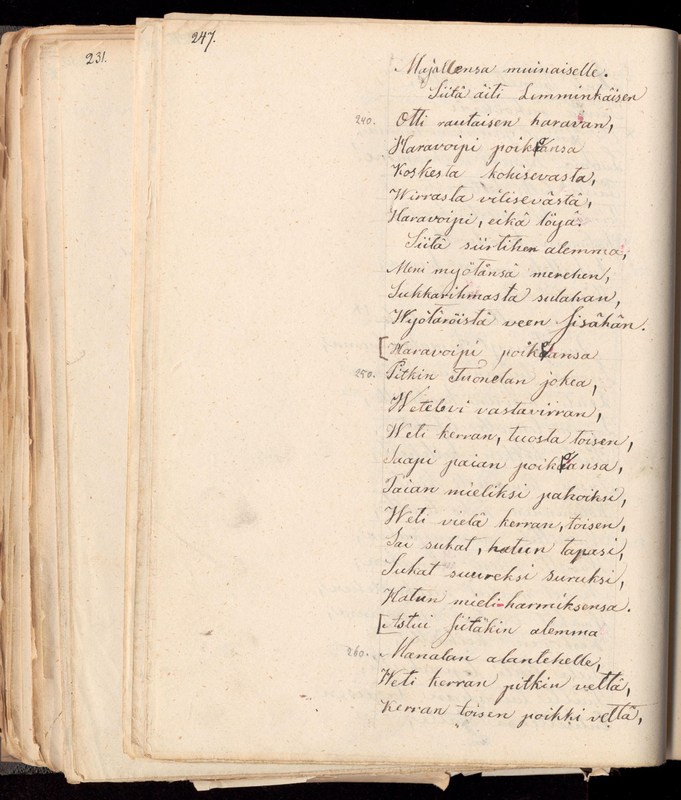 231.
247.
Majallensa muinaiselle.
Siitä äiti Lemminkäisen
240. Otti rautaisen haravan,
Haravoipi poikoansa
Koskesta kohisevasta,
Wirrasta vilisevästä,
Haravoipi, eikä löyä.
Siitä siirtihen alemma,
Meni myötänsä merehen,
Sukkarihmasta sulahan,
Wyötäröistä veen sisähän.
[Haravoipi poikoansa
250. Pitkin Tuonelan jokea,
Wetelevi vastavirran,
Weti kerran, tuosta toisen,
Saapi paian poikoansa,
Paian mieliksi pahoiksi,
Weti vielä kerran, toisen,
Sai sukat, hatun tapasi,
Sukat suureksi suruksi,
Hatun mieli-harmiksensa.
[Astui siitäkin alemma
260. Manalan alantehelle,
Weti kerran pitkin vettä,
Kerran toisen poikki vettä,